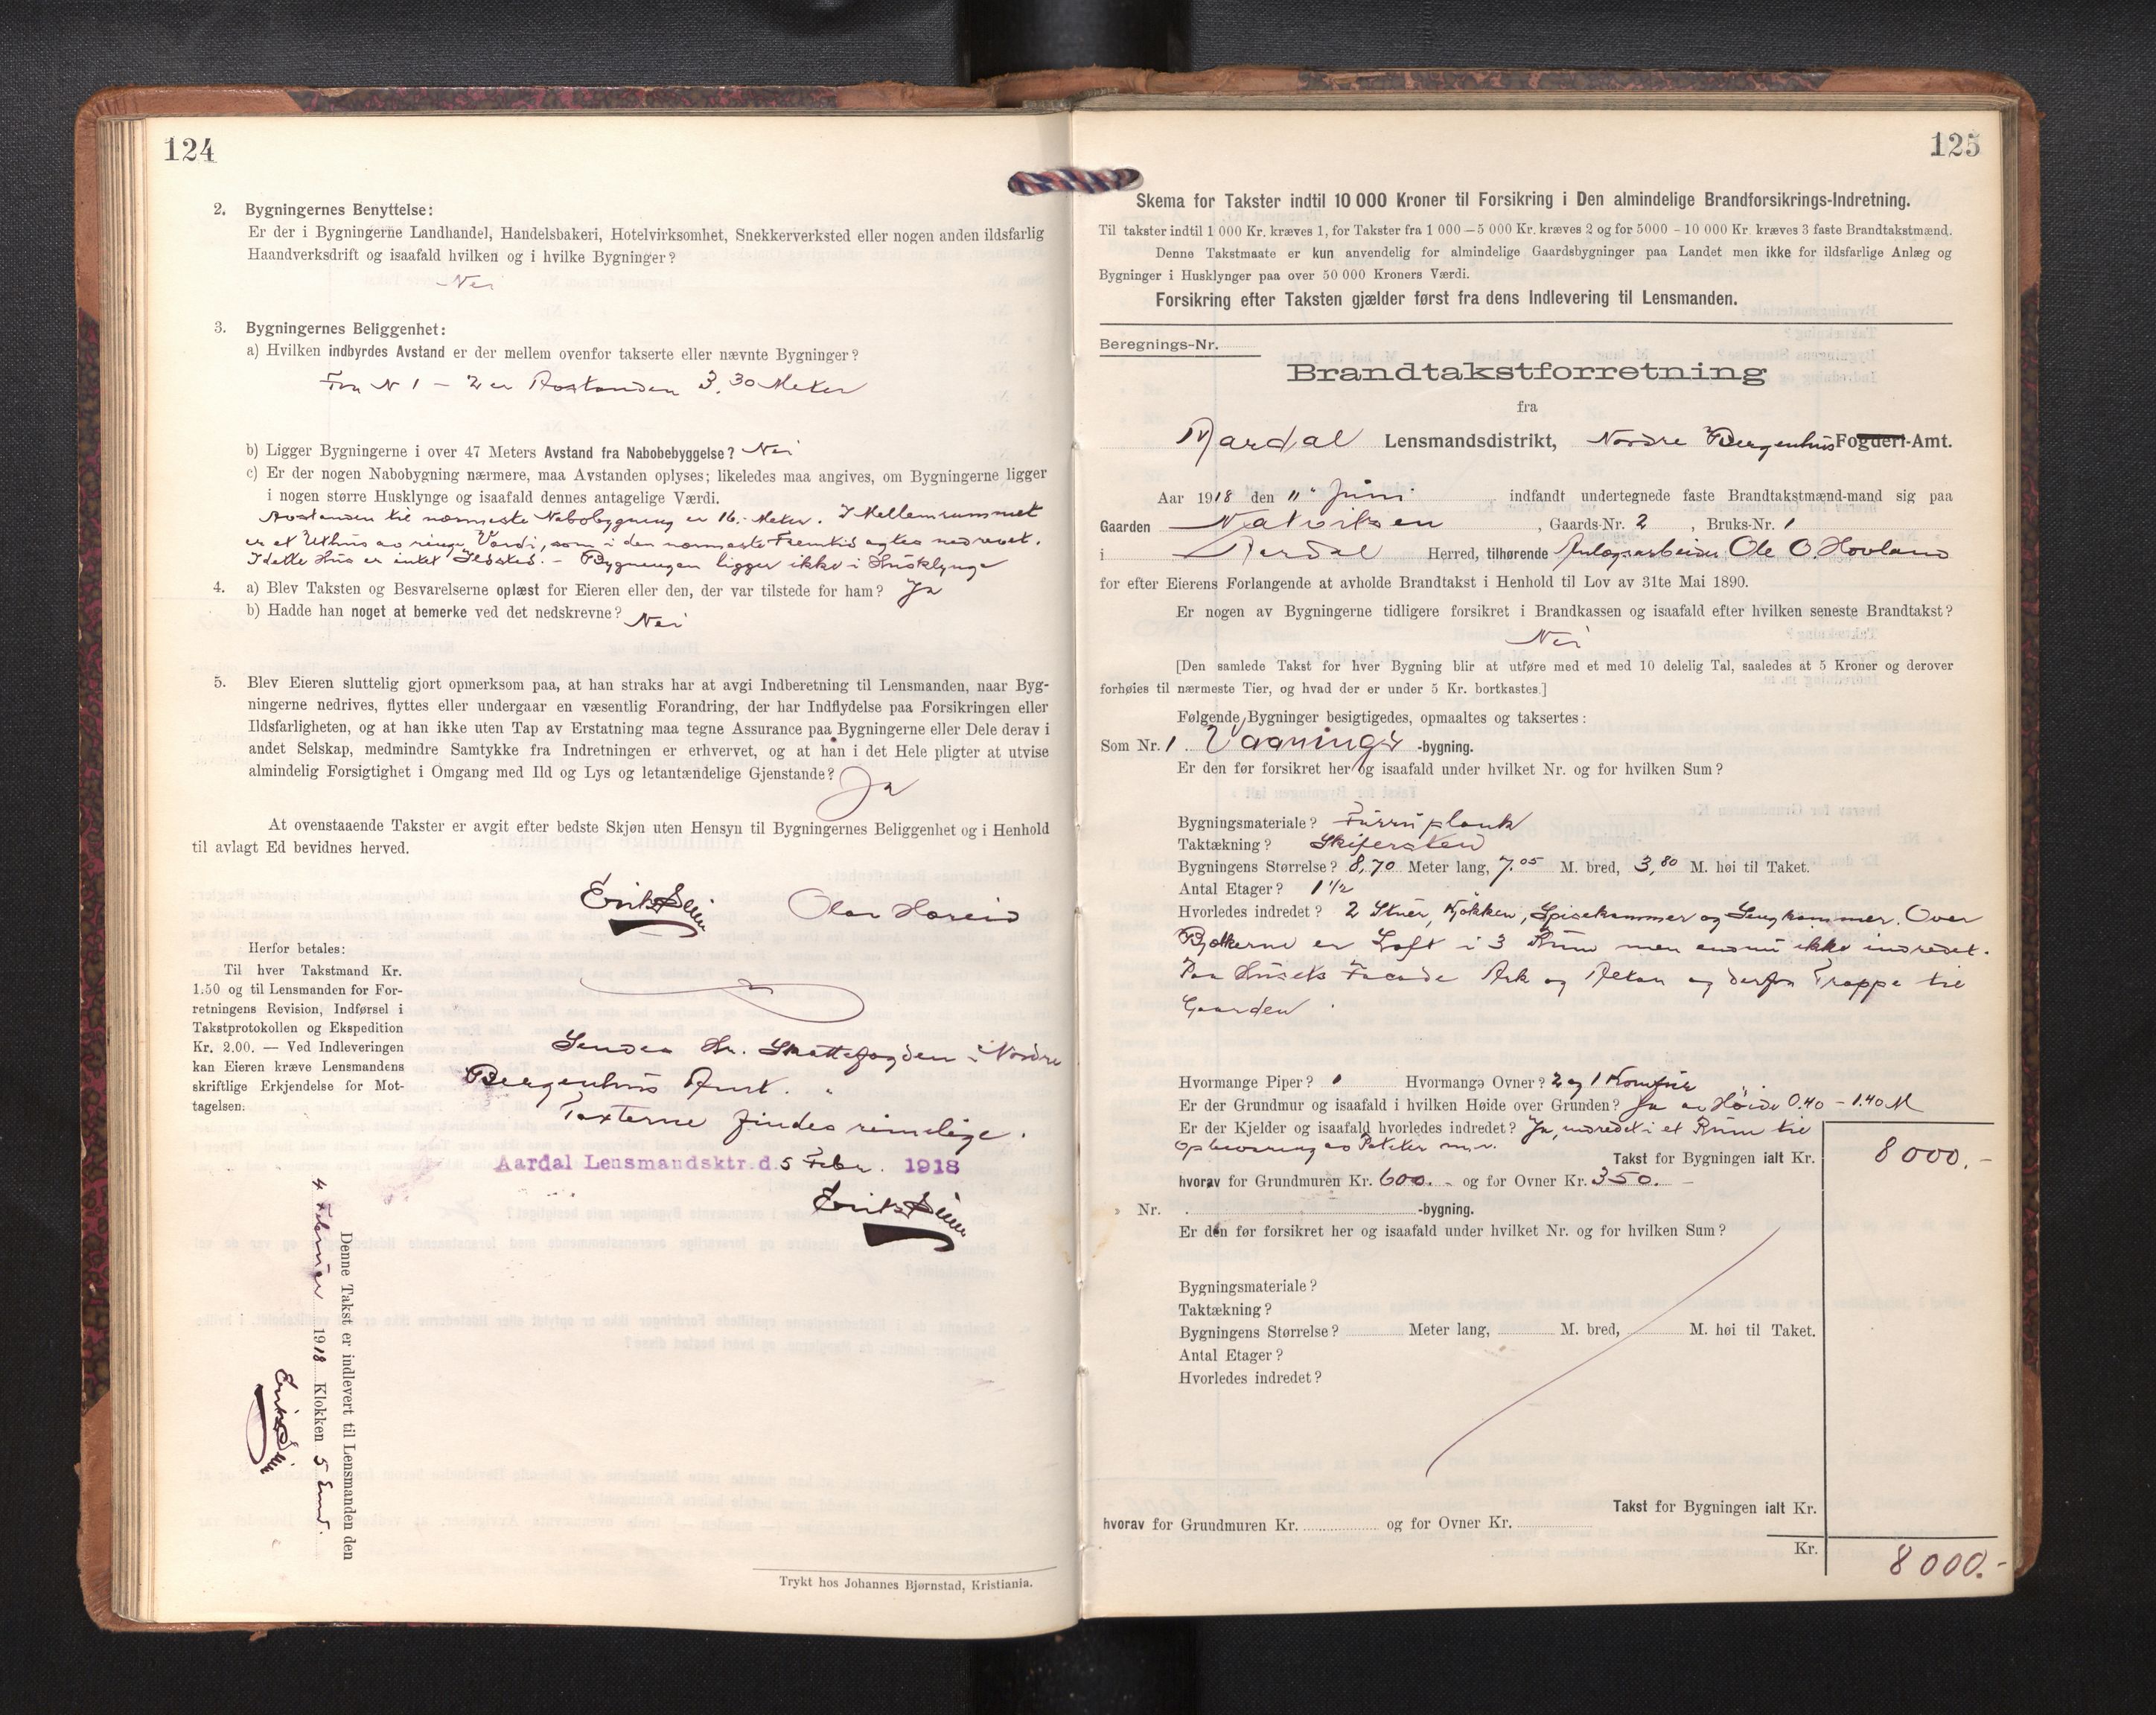 124
2. Bygningernes Benyttelse:
Er der i Bygningerne Landhandel, Handelsbakeri, Hotelvirksomhet, Snekkerverksted eller nogen anden ildsfarlig
Haandverksdrift og isaafald hvilken og i hvilke Bygninger?
Nei
3. Bygningernes Beliggenhet:
a) Hvilken indbyrdes Avstand er der mellem ovenfor takserte eller nævnte Bygninger?
Fra N 1 – 2 er Avstanden 3,30 Meter
b) Ligger Bygningerne i over 47 Meters Avstand fra Nabobebyggelse? Nei
c) Er der nogen Nabobygning nærmere, maa Avstanden oplyses; likeledes maa angives, om Bygningerne ligger
i nogen større Husklynge og isaafald dennes antagelige Værdi.
Avstanden til nærmeste Nabobygning er 16.- Meter. I Mellemrummet
er et Uthus av ringe Værdi, som i den nærmeste Fremtid agtes nedrevet.
I dette Hus er intet Ildsted. – Bygningen ligger ikke i Husklynge
4. a) Blev Taksten og Besvarelserne oplæst for Eieren eller den, der var tilstede for ham? Ja
b) Hadde han noget at bemerke ved det nedskrevne? Nei
5. Blev Eieren sluttelig gjort opmerksom paa, at han straks har at avgi Indberetning til Lensmanden, naar Byg-
ningerne nedrives, flyttes eller undergaar en væsentlig Forandring, der har Indflydelse paa Forsikringen eller
Ildsfarligheten, og at han ikke uten Tap av Erstatning maa tegne Assurance paa Bygningerne eller Dele derav i
andet Selskap, medmindre Samtykke fra Indretningen er erhvervet, og at han i det Hele pligter at utvise
almindelig Forsigtighet i Omgang med Ild og Lys og letantændelige Gjenstande? Ja
At ovenstaaende Takster er avgit efter bedste Skjøn uten Hensyn til Bygningernes Beliggenhet og i Henhold
til avlagt Ed bevidnes herved.
Olav Hæreid
Herfor betales:
Til hver Takstmand Kr.
1.50 og til Lensmanden for For-
retningens Revision, Indførsel i
Takstprotokollen og Ekspedition
Kr. 2.00. — Ved Indleveringen
kan Eieren kræve Lensmandens
skriftlige Erkjendelse for Mot-
tagelsen.
Sendes Hr. Skattefogden i Nordre
Bergenhus Amt.
Taxterne findes rimelige.
Aardal Lensmandsktr. d. 5 Febr. 1918
Denne Takst er indlevert til Lensmanden den
4 Februar 1918 Klokken 5 Emd.
Trykt hos Johannes Bjørnstad, Kristiania.
125
Skema for Takster indtil 10 000 Kroner til Forsikring i Den almindelige Brandforsikrings-Indretning.
Til takster indtil 1 000 Kr. kræves 1, for Takster fra 1 000 — 5 000 Kr. kræves 2 og for 5000 - 10 000 Kr. kræves 3 faste Brandtakstmænd.
Denne Takstmaate er kun anvendelig for almindelige Gaardsbygninger paa Landet men ikke for ildsfarlige Anlæg og
Bygninger i Husklynger paa over 50 000 Kroners Værdi.
Forsikring efter Taksten gjælder først fra dens Indlevering til Lensmanden.
Beregnings-Nr.
Brandtakstforretning
fra
Aardal Lensmandsdistrikt, Nordre Bergenhus Fogderi-Amt.
Aar 1918 den 11' Juni indfandt undertegnede faste Brandtakstmænd-mand sig paa
Gaarden Natviken, Gaards-Nr. 2, Bruks-Nr. 1
i Aardal Herred, tilhørende Anlægsarbeider Ole O. Hovland
for efter Eierens Forlangende at avholde Brandtakst i Henhold til Lov av 31te Mai 1890.
Er nogen av Bygningerne tidligere forsikret i Brandkassen og isaafald efter hvilken seneste Brandtakst?
Nei
[Den samlede Takst for hver Bygning blir at utføre med et med 10 delelig Tal, saaledes at 5 Kroner og derover
forhøies til nærmeste Tier, og hvad der er under 5 Kr. bortkastes.]
Følgende Bygninger besigtigedes, opmaaltes og taksertes:
Som Nr. 1. Vaanings-bygning.
Er den før forsikret her og isaafald under hvilket Nr. og for hvilken Sum?
Bygningsmateriale? Furruplank
Taktækning? Skifersten
Bygningens Størrelse? 8,70 Meter lang, 7,05 M. bred, 3,80 M. høi til Taket.
Antal Etager? 1 1/2
Hvorledes indredet? 2 Stuer, Kjøkken, Spisekammer og Sengkammer. Over
Bjelkerne er Loft i 3 Rum men endnu ikke indredet.
Paa Husets Facade Ark og Altan og derfra Trappe til
Gaarden.
Hvormange Piper? 1 Hvormange Ovner? 2 og 1 Komfur
Er der Grundmur og isaafald i hvilken Høide over Grunden? Ja av Høide 0.40 – 1.40 M
Er der Kjelder og isaafald hvorledes indredet? Ja, indredet i et Rum til
opbevaring av Poteter m.v. Takst for Bygningen ialt Kr. 8000.-
hvorav for Grundmuren Kr. 600. - og for Ovner Kr. 350. -
Nr. -bygning.
Er den før forsikret her og isaafald under hvilket Nr. og for hvilken Sum?
Bygningsmateriale?
Taktækning?
Bygningens Størrelse? Meter lang, M. bred, M. høi til Taket.
Antal Etager?
Hvorledes indredet?
Takst for Bygningen ialt Kr.
hvorav for Grundmuren Kr. og for Ovner Kr.
Kr. 8000.-